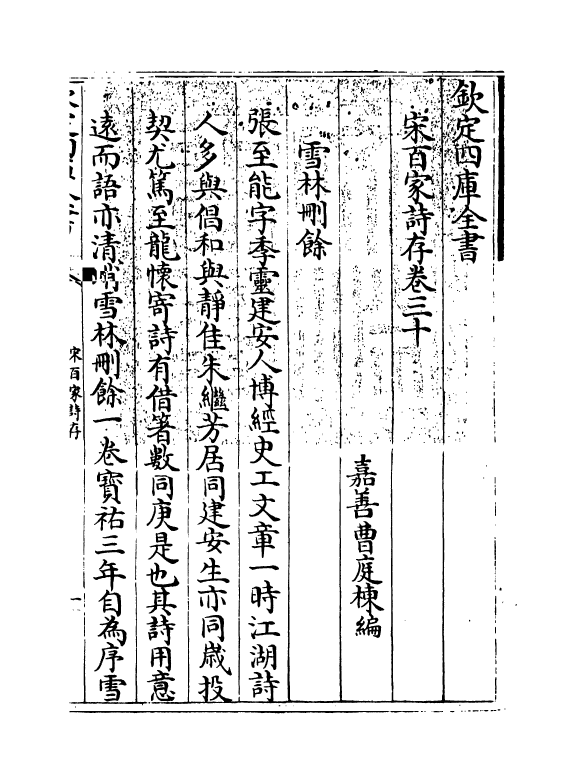 欽定四庫全書
宋百家詩存卷三十
嘉善曹庭棟編
雪林刪餘
張至能字季靈建安人博經史工文章一時江湖詩
人多與倡和與靜佳朱繼芳居同建安生亦同歲投
契尤篤至龍懷寄詩有借著數同庚是也其詩用意
遠而語亦清峭雪林刪餘一卷寶祐三年自為序雪
宋百家詩存
一